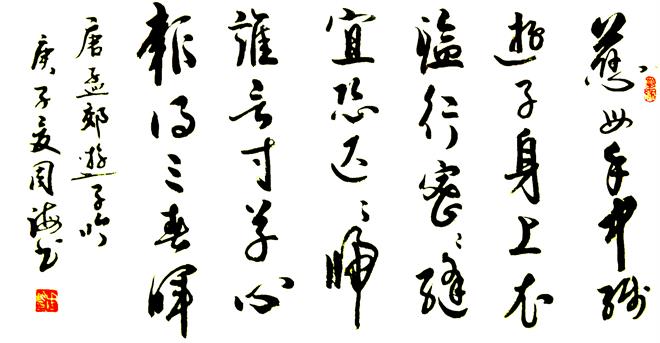 慈母手中線
遊子身上衣
臨行密〻縫
宜恐迟〻歸
誰言寸草心
報得三春暉
唐孟郊遊子吟
庚子夏周海书